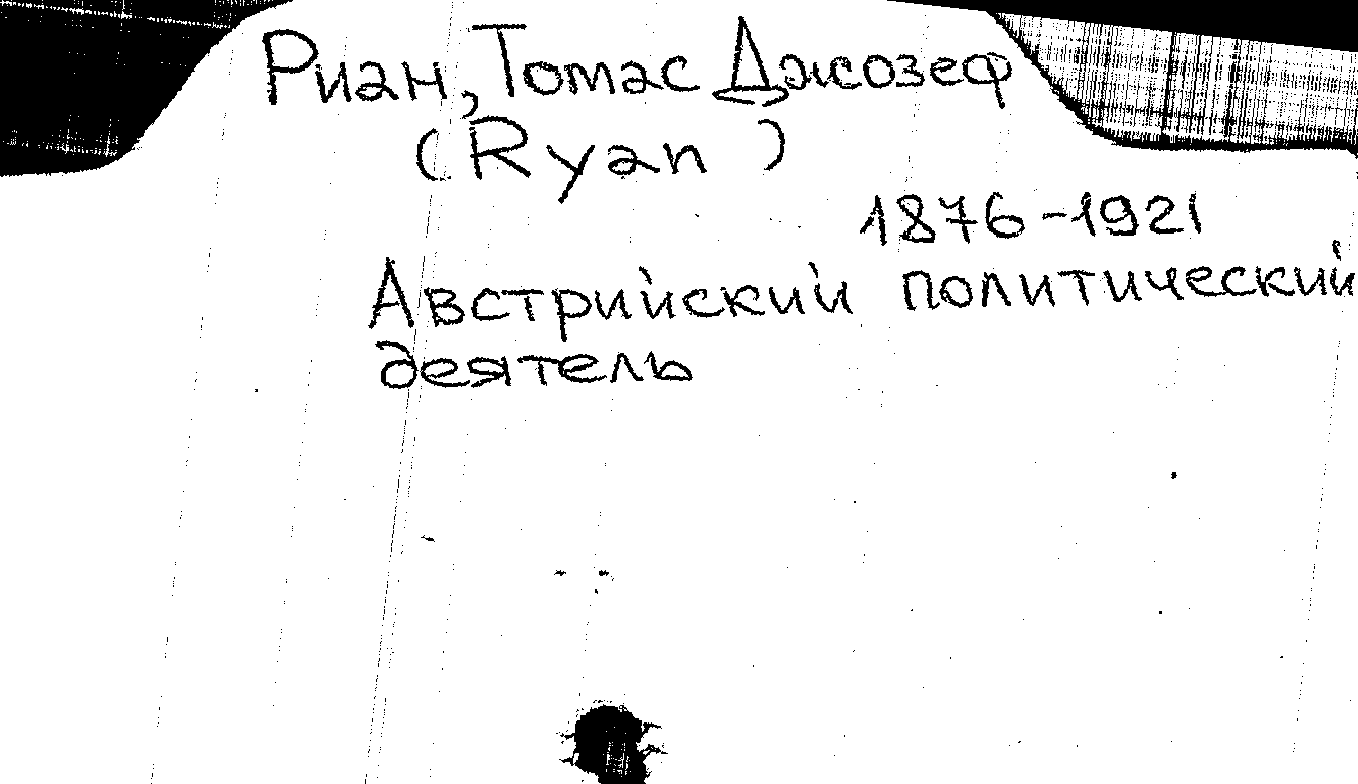 Риан, Томас Джозеф
(Ryan )
1876-1921
Австрийский политический
деятель